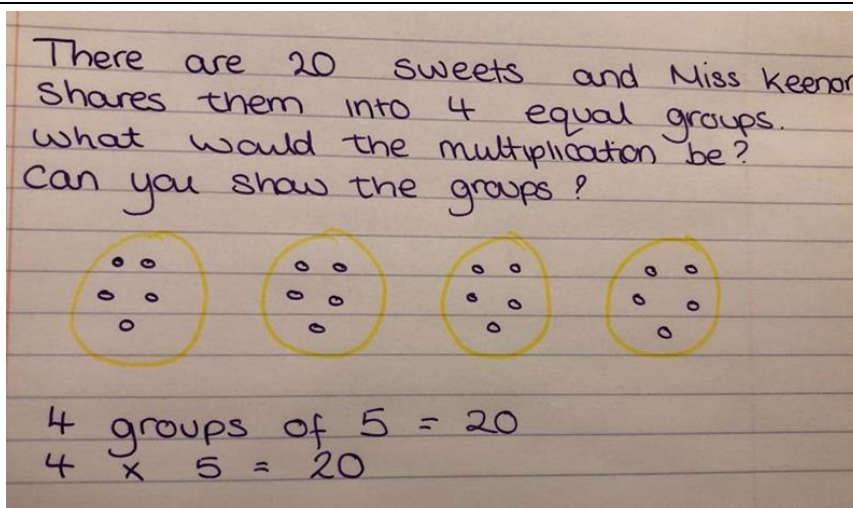 There are 20 sweets and Miss Keenor
shares them into 4 equal groups.
What would the multiplication be?
Can you show the groups?
4 groups of 5 = 20
4 x 5 = 20